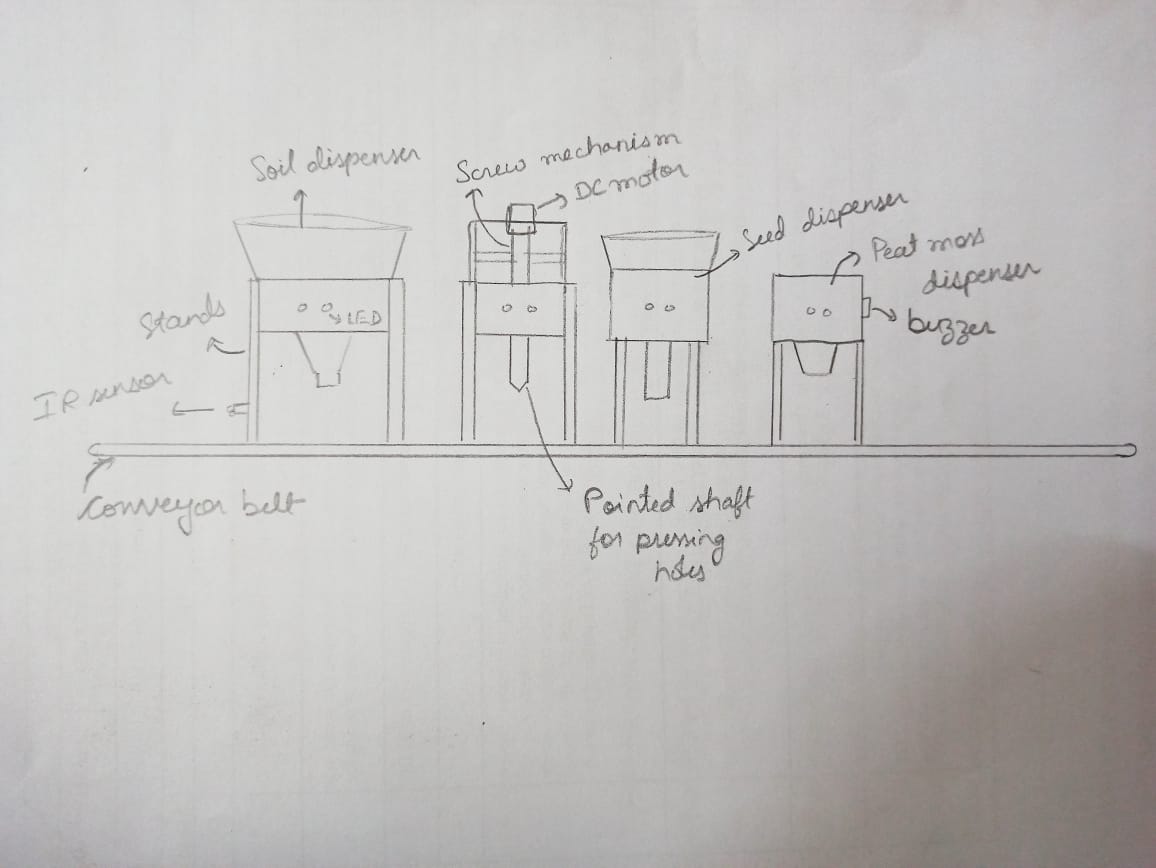 Soil dispenser
Screw mechanism
DC motor
Seed dispenser
Peat moss
dispenser
buzzer
Stands
LED
IR sensor
Conveyor belt
Pointed shaft
for pressing
holes